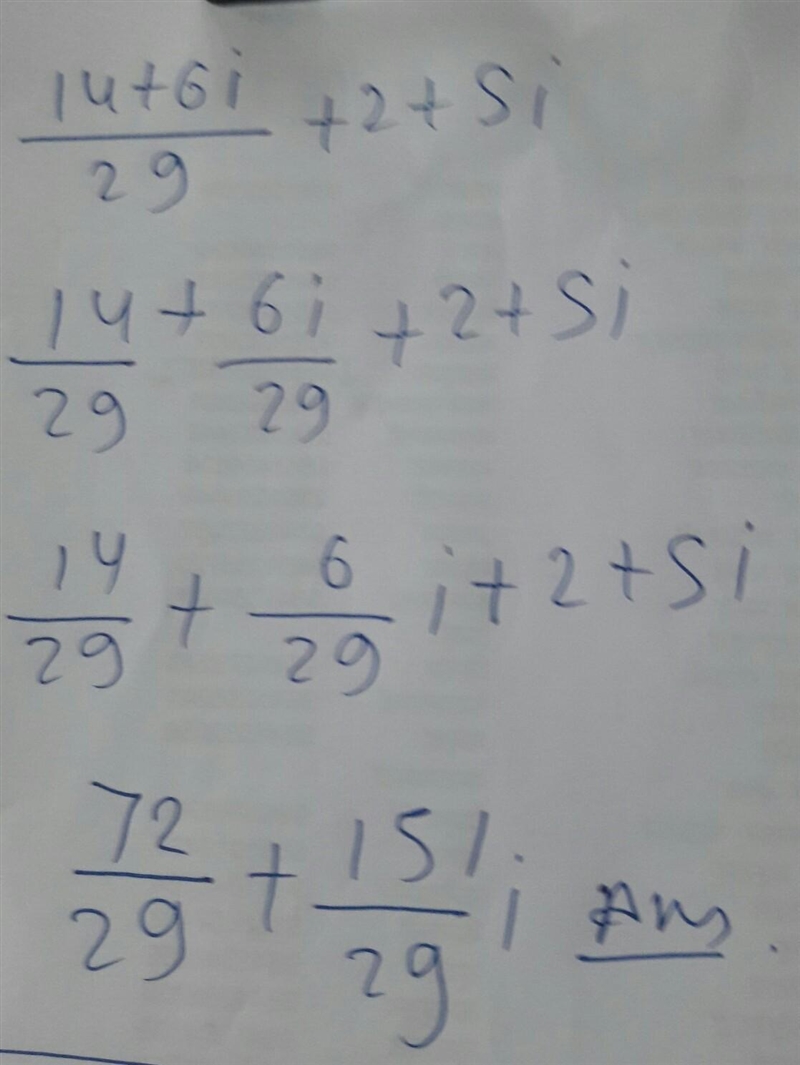 14+6i/29 +2+5i
14/29 + 6i/29 +2+5i
14/29 + 6/29 i+2+5i
72/29 + 151/29 i Ans.